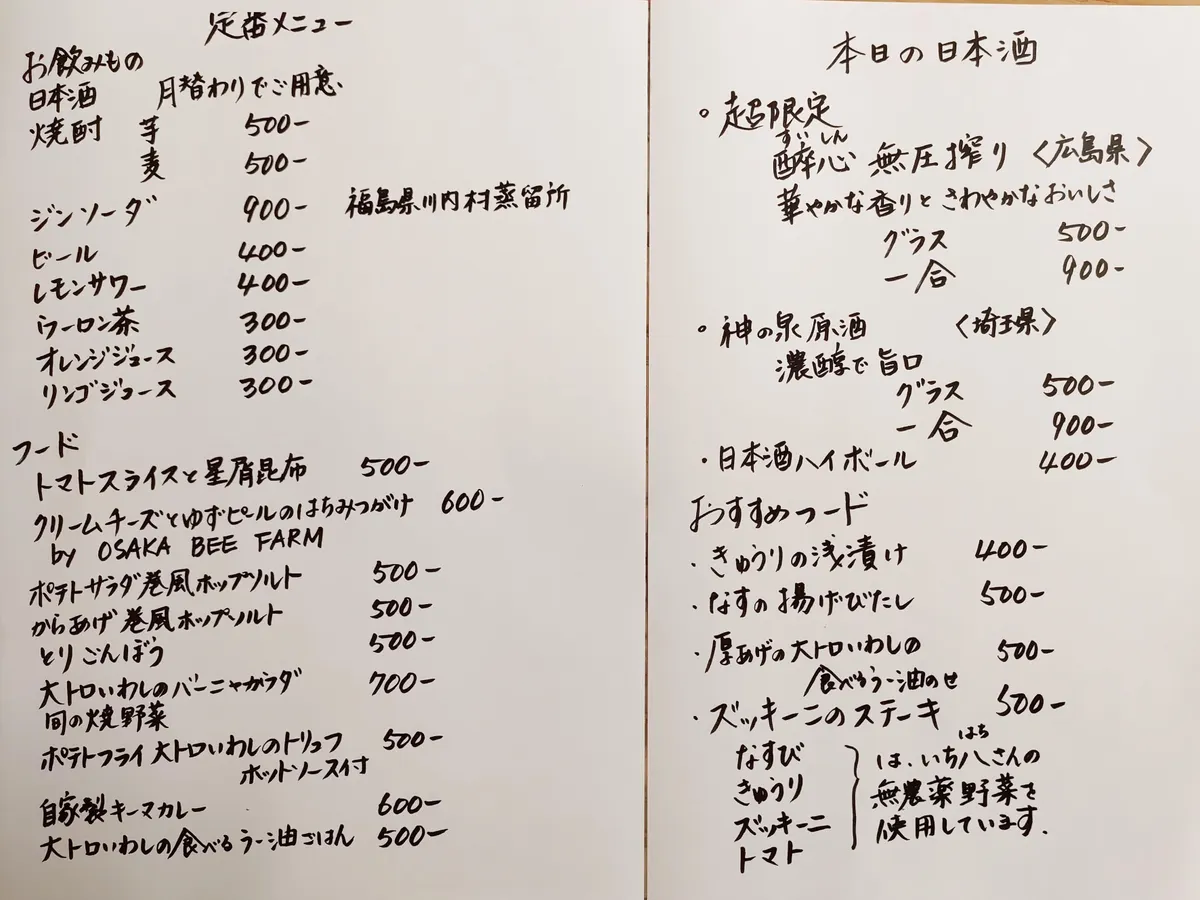 定番メニュー
お飲みもの
日本酒 月替わりでご用意
焼酎 芋 500-
麦 500-
ジンソーダ 900- 福島県川内村蒸留所
ビール 400-
レモンサワー 400-
ウーロン茶 300-
オレンジジュース 300-
リンゴジュース 300-
フード
トマトスライスと星屑昆布 500-
クリームチーズとゆずピールのはちみつがけ 600-
by OSAKA BEE FARM
ポテトサラダ巻風ホップソルト 500-
からあげ巻風ホップソルト 500-
とりごんぼう 500-
大トロいわしのバーニャカウダ 700-
旬の焼野菜
ポテトフライ大トロいわしのトリュフ 500-
ホットソース付
自家製キーマカレー 600-
大トロいわしの食べるラー油ごはん 500-
本日の日本酒
・超限定
すいしん
酔心 無圧搾り〈広島県〉
華やかな香りとさわやかなおいしさ
グラス 500-
一合 900-
・神の泉原酒 〈埼玉県〉
濃醇で旨口
グラス 500-
一合 900-
・日本酒ハイボール 400-
おすすめフード
・きゅうりの浅漬け 400-
・なすの揚げびたし 500-
・厚あげの大トロいわしの 500-
食べるラー油のせ
・ズッキーニのステーキ 500-
なすび
きゅうり
ズッキーニ
トマト
はち
は、いち八さんの
無農薬野菜を
使用しています.